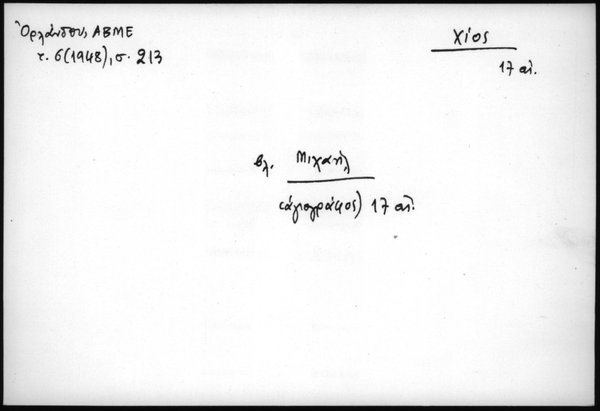 Ὀρλάνδος, ΑΒΜΕ
τ. 6 (1948), σ. 213
Χίος
17 αἰ.
βλ. Μιχαήλ
(ἁγιογράφος) 17 αἰ.